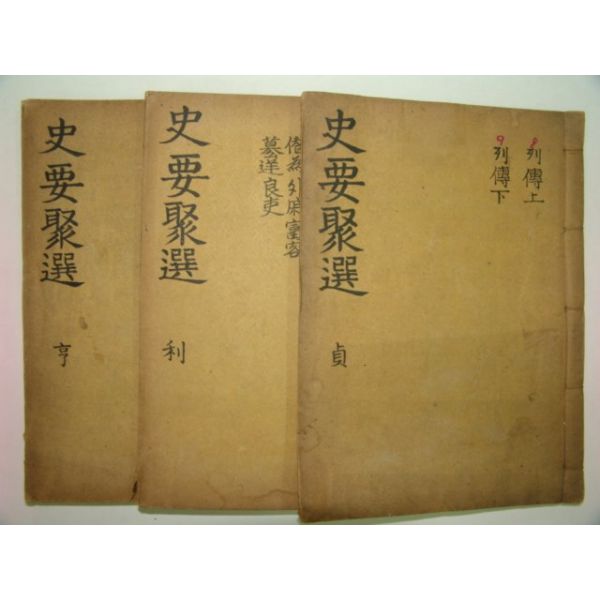 史要聚選
亨
史要聚選
利
外戚
良吏
史要聚選
貞
8 列傳上
9 列傳下